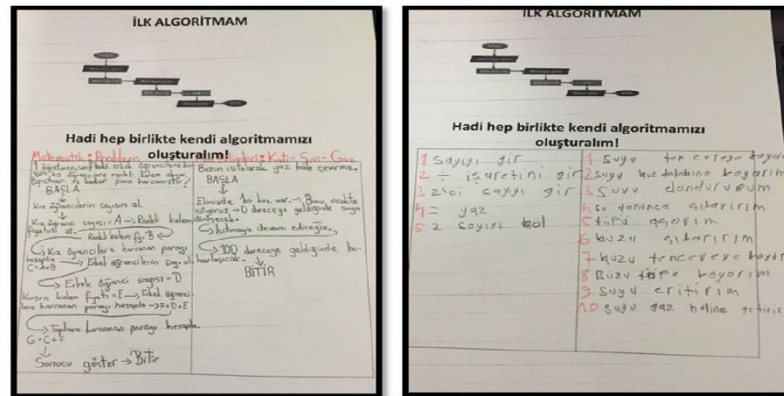 İLK ALGORİTMAM
Hadi hep birlikte kendi algoritmamızı
oluşturalım!
Matematik: Problem
Katı - Sıvı - Gaz
Buzun ısıtılarak gaz hale çevirme.
BAŞLA
BAŞLA
Kız öğrencilerin sayısını al.
Kız öğrenci sayısı = A → Renkli kalem
fiyatını al.
Renkli kalem fiy. B
Kız öğrencilere harcanan parayı
hesapla
C = A×B
Erkek öğrencilerin say. al.
Erkek öğrenci sayısı = D
Kurşun kalem fiyatı = E → Erkek öğrenci-
lere harcanan parayı hesapla → F = D×E
Toplam harcanan parayı hesapla.
G = C + F
Sonucu göster → Bitir
Elimizde bir buz var. → Bunu ocakta
ısıtıyoruz → 0 dereceye geldiğinde suya
dönüşecek.
Isıtmaya devam edeceğiz.
100 dereceye geldiğinde bu-
harlaşacak.
BİTİR
İLK ALGORİTMAM
Hadi hep birlikte kendi algoritmamızı
oluşturalım!
1 Sayıyı gir
2 ÷ işaretini gir
3 2.ci sayıyı gir
4 = yaz
5 2 sayıyı böl
1 Suyu tencereye
2 Suyu buz dolabına koyarım
3 Suyu dondururum
4 Su donunca çıkarırım
5 tüpü açarım
6 buzu çıkarırım
7 buzu tencereye
8 Buzu tüpe koyarım
9 Suyu eritirim
10 Suyu gaz haline